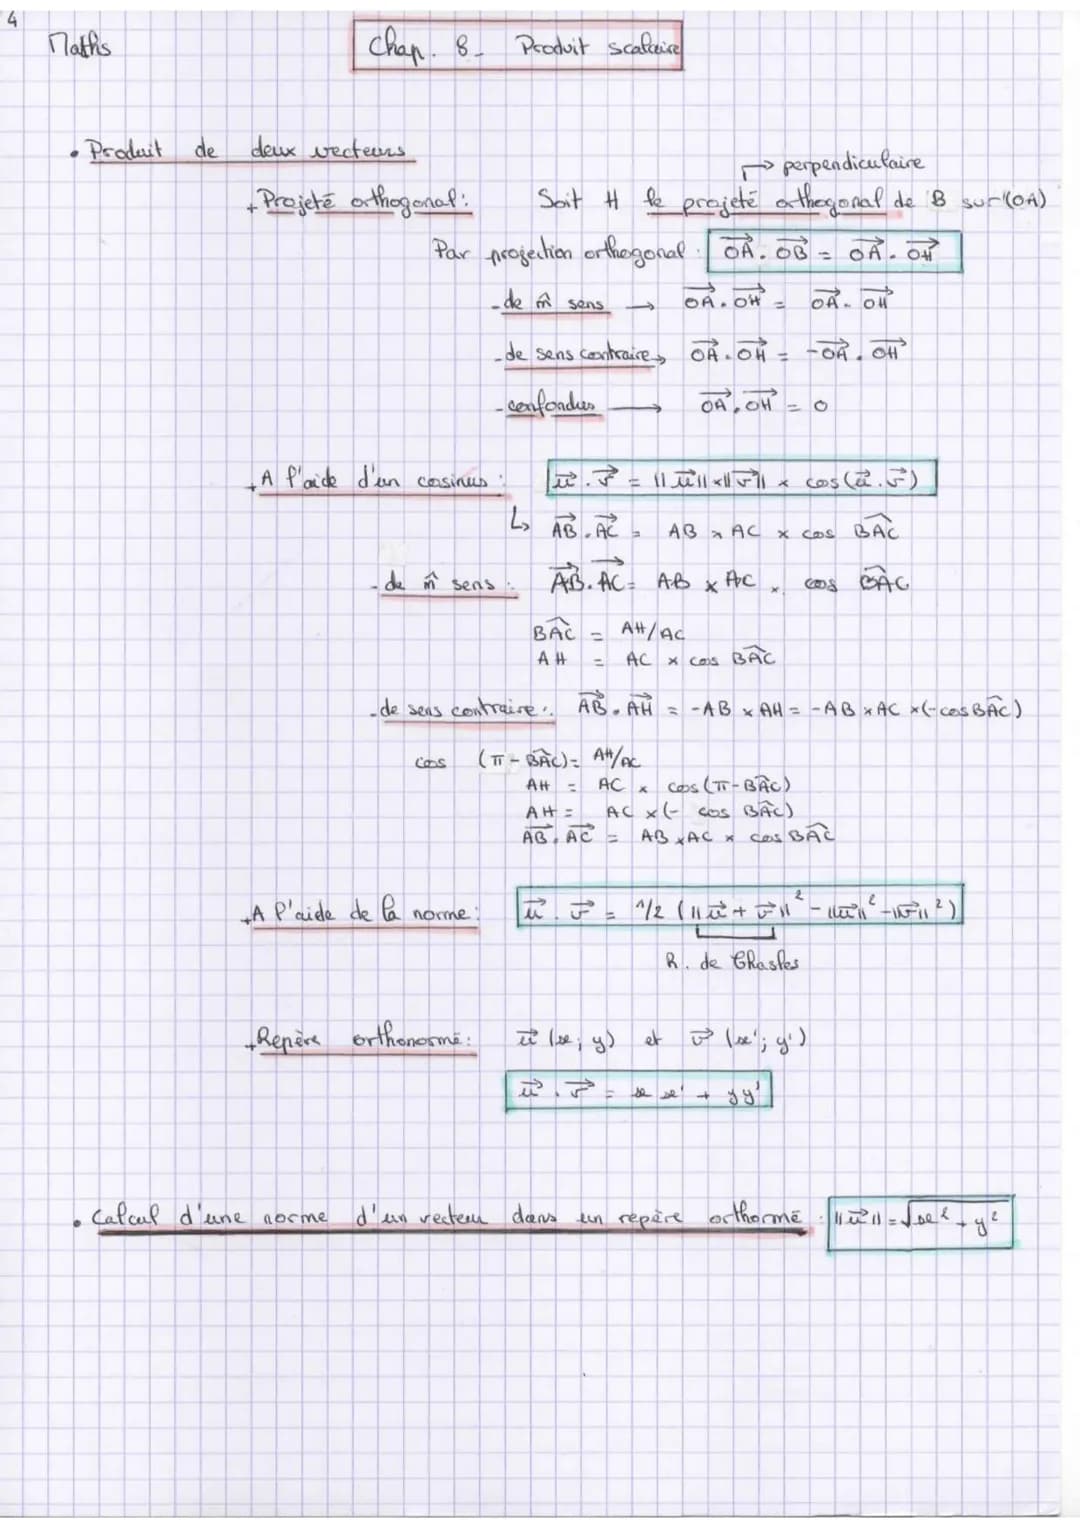 4
Maths
Chap. 8 - Produit scalaire
• Produit de deux vecteurs
→ perpendiculaire
+ Projeté orthogonal : Soit H le projeté orthogonal de B sur (OA)
Par projection orthogonal : $\vec{OA} . \vec{OB} = \vec{OA} . \vec{OH}$
- de m̂ sens → $\vec{OA} . \vec{OH} = \vec{OA} . \vec{OH}$
- de sens contraire → $\vec{OA} . \vec{OH} = -\vec{OA} . \vec{OH}$
- confondus → $\vec{OA} . \vec{OH} = 0$
+ A l'aide d'un cosinus : $\vec{u} . \vec{v} = ||\vec{u}|| \times ||\vec{v}|| \times cos(\vec{u} . \vec{v})$
↳ $\vec{AB} . \vec{AC} = AB \times AC \times cos \widehat{BAC}$
- de m̂ sens : $\vec{AB} . \vec{AC} = AB \times AC \times cos \widehat{BAC}$
$\widehat{BAC} = AH/AC$
$AH = AC \times cos \widehat{BAC}$
- de sens contraire : $\vec{AB} . \vec{AH} = -AB \times AH = -AB \times AC \times (-cos \widehat{BAC})$
cos $(\pi - \widehat{BAC}) = AH/AC$
$AH = AC \times cos(\pi - \widehat{BAC})$
$AH = AC \times (- cos \widehat{BAC})$
$\vec{AB} . \vec{AC} = AB \times AC \times cos \widehat{BAC}$
+ A l'aide de la norme : $\vec{u} . \vec{v} = 1/2 (||\vec{u} + \vec{v}||^2 - ||\vec{u}||^2 - ||\vec{v}||^2)$
R. de Chasles
+ Repère orthonormé : $\vec{u}$ (x ; y) et $\vec{v}$ (x' ; y')
$\vec{u} . \vec{v} = x x' + y y'$
• Calcul d'une norme d'un vecteur dans un repère orthormé : $||\vec{u}|| = \sqrt{x^2 + y^2}$